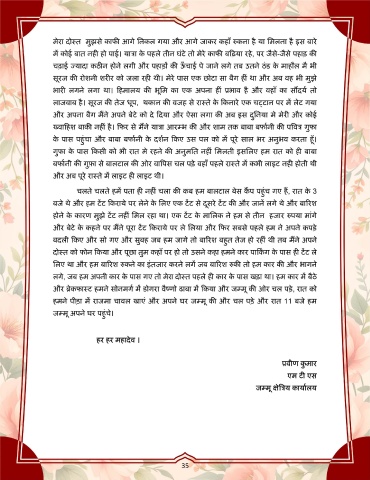 मेरा दोस्त मुझसे काफी आगे निकल गया और आगे जाकर कहाँ रुकना है या मिलना है इस बारे
में कोई बात नहीं हो पाई। यात्रा के पहले तीन घंटे तो मेरे काफी बढ़िया रहे, पर जैसे-जैसे पहाड़ की
चढ़ाई ज्यादा कठीन होने लगी और पहाड़ों की ऊँचाई पे जाने लगे तब उतने ठंड के माहौल में भी
सूरज की रोशनी शरीर को जला रही थी। मेरे पास एक छोटा सा बैग ही था और अब वह भी मुझे
भारी लगने लगा था। हिमालय की भूमि का एक अपना ही प्रभाव है और वहाँ का सौंदर्य तो
लाजवाब है। सूरज की तेज धूप, थकान की वजह से रास्ते के किनारे एक चट्टान पर मैं लेट गया
और अपना बैग मैंने अपने बेटे को दे दिया और ऐसा लगा की अब इस दुनिया में मेरी और कोई
ख्वाहिश बाकी नहीं है। फिर से मैंने यात्रा आरम्भ की और शाम तक बाबा बर्फानी की पवित्र गुफ़ा
के पास पहुंचा और बाबा बर्फानी के दर्शन किए उस पल को मैं पूरे साल भर अनुभव करता हूँ।
गुफ़ा के पास किसी को भी रात में रहने की अनुमति नहीं मिलती इसलिए हम रात को ही बाबा
बर्फानी की गुफ़ा से बालटाल की ओर वापिस चल पड़े वहाँ पहले रास्ते में कभी लाइट नहीं होती थी
और अब पूरे रास्ते में लाइट ही लाइट थी।
चलते चलते हमें पता ही नहीं चला की कब हम बालटाल बेस कैंप पहुंच गए हैं, रात के 3
बजे थे और हम टेंट किराये पर लेने के लिए एक टेंट से दूसरे टेंट की और जाने लगे थे और बारिश
होने के कारण मुझे टेंट नहीं मिल रहा था। एक टेंट के मालिक ने हम से तीन हजार रुपया मांगे
और बेटे के कहने पर मैंने पूरा टेंट किराये पर ले लिया और फिर सबसे पहले हम ने अपने कपड़े
बदली किए और सो गए और सुबह जब हम जागे तो बारिश बहुत तेज हो रही थी तब मैंने अपने
दोस्त को फोन किया और पूछा तुम कहाँ पर हो तो उसने कहा हमने कार पार्किंग के पास ही टेंट ले
लिए था और हम बारिश रुकने का इंतजार करने लगे जब बारिश रुकी तो हम कार की और भागने
लगे, जब हम अपनी कार के पास गए तो मेरा दोस्त पहले ही कार के पास खड़ा था। हम कार में बैठे
और ब्रेकफास्ट हमने सोनमर्ग में डोगरा वैष्णो ढाबा में किया और जम्मू की ओर चल पड़े, रात को
हमने पीड़ा में राजमा चावल खाएं और अपने घर जम्मू की और चल पड़े और रात 11 बजे हम
जम्मू अपने घर पहुंचे।
हर हर महादेव ।
प्रवीण कुमार
एम टी एस
जम्मू क्षेत्रिय कार्यालय
35